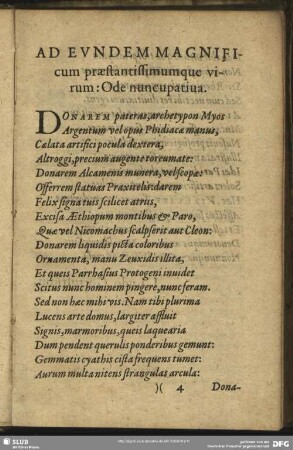 AD EVNDEM MAGNIFI-
cum præstantissimumque vi-
rum: Ode nuncupatiua.
DONAREM pateras, archetypon Myos
Argentum vel opus Phidiacæ manus,
Cælata artifici pocula dextera,
Altroggi, precium augente toreumate:
Donarem Alcamenis munera, vel scopæ:
Offerrem statuas Praxitelis: darem
Felix signa tuis scilicet atriis,
Excisa Æthiopum montibus & Paro,
Quæ vel Nicomachus scalpserit aut Cleon:
Donarem liquidis picta coloribus
Ornamenta, manu Zeuxidis illita,
Et queis Parrhasius Protogeni inuidet
Scitus nunc hominem pingere, nunc feram.
Sed non hæc mihi vis. Nam tibi plurima
Lucens arte domus, largiter affluit
Signis, marmoribus, queis laquearia
Dum pendent querulis ponderibus gemunt:
Gemmatis cyathis cista frequens tumet:
Aurum multa nitens strangulat arcula:
)( 4 Dona-
SLUB
Wir führen Wissen.
DFG